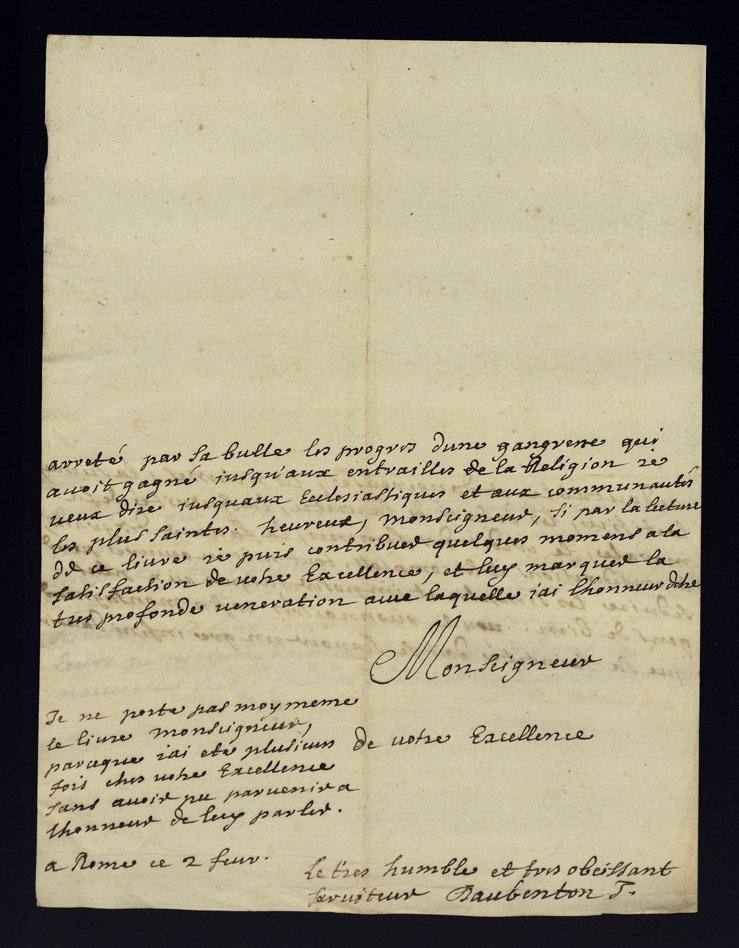 arreté par sa bulle les progres dune gangrene qui
avoit gagné jusqu'aux entrailles de la Religion je
veux dire jusquaux Ecclesiastiques et aux communautés
les plus saintes. heureux, Monseigneur, si par la lecture
de ce livre je puis contribuer quelques momens a la
satisfaction de votre Excellence, et luy marquer la
tres profonde veneration avec laquelle jai lhonneur detre
Monseigneur
de votre Excellence
Je ne porte pas moy meme
le livre Monseigneur,
parceque jai eté plusieurs
fois chez votre Excellence
sans avoir pu parvenir a
lhonneur de luy parler.
a Rome ce 2 feur.
Le tres humble et tres obeissant
serviteur Daubenton J.